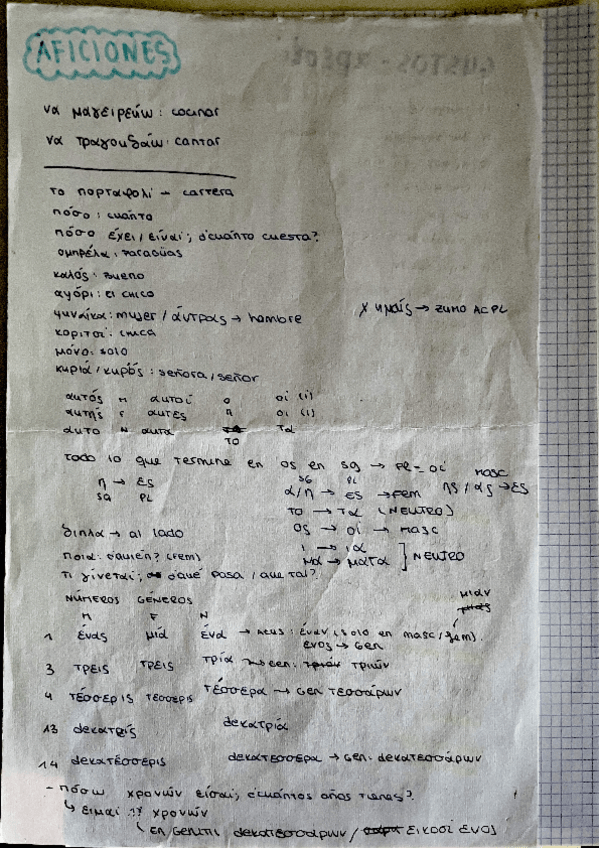 AFICIONES
να μαγειρεύω : cocinar
να τραγουδάω : cantar
το πορταφολι → carrera
πόσο : cuánto
πόσο έχει / είναι; ¿cuánto cuesta?
ομπρέλα : paraguas
καλός : bueno
αγόρι : el chico
γυναίκα : mujer / άντρας → hombre
κοριτσι : chica
μόνο : solo
κυριά / κυρός : señora / señor
αυτός M αυτοί ο οί (i)
αυτής F αυτές η οι (i)
αυτο N αυτα το τα
Todo lo que termine en os en sg → pl = οί
η → ες
SG PL
SG PL
α/η → ες → fem
masc
ης / ας → ες
το → τα (NEUTRO)
ος → οί → masc
ι → ια
μα → ματα ] NEUTRO
διπλα → al lado
ποια : ¿quién? (fem)
τι γίνεται; ¿qué pasa / que tal?
NÚMEROS GÉNEROS
M F N
1 ένας μιά ένα → acus : έναν (solo en masc / fem)
μιαν
ενος → Gen
3 τρεις τρεις τρία → Gen : τριών
4 τέσσερις τέσσερις τέσσερα → Gen τεσσάρων
13 δεκατρίς δεκατρία
14 δεκατέσσερις δεκατεσσερα → Gen : δεκατεσσάρων
- πόσω χρονών είσαι; ¿cuántos años tienes?
↳ ειμαι 17 χρονών
δεκατεσσάρων / εικοσί ενος